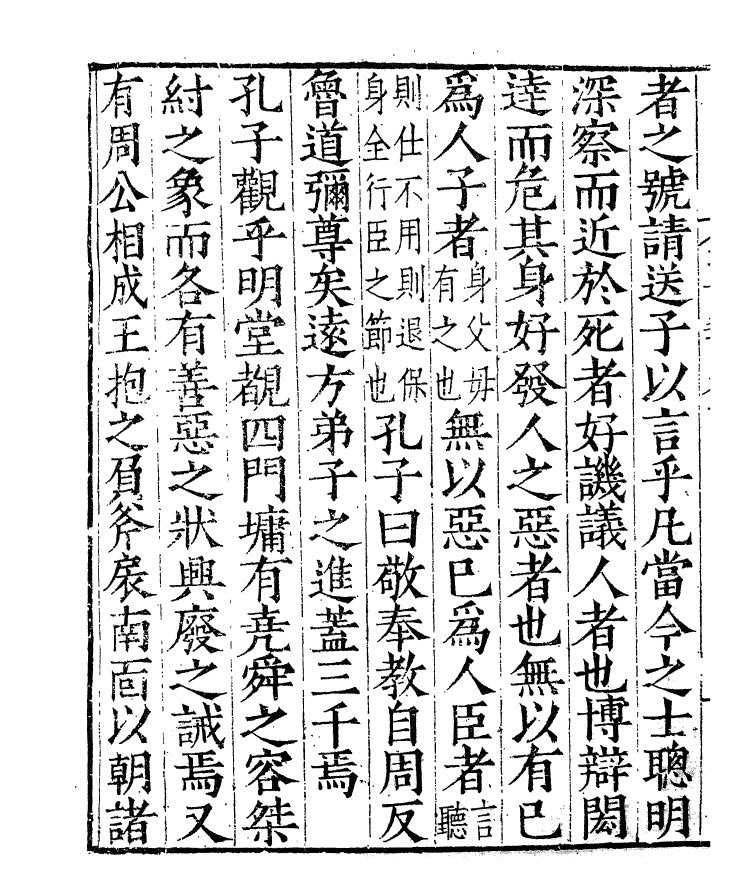 者之號請送子以言乎凡當今之士聰明
深察而近於死者好譏議人者也博辯閎
逹而危其身好發人之惡者也無以有已
爲人子者身父母有之也無以惡已爲人臣者言聽
則仕不用則退保身全行臣之節也孔子曰敬奉教自周反
魯道彌尊矣逺方弟子之進蓋三千焉
孔子觀乎明堂覩四門墉有堯舜之容桀
紂之象而各有善惡之狀興廢之誡焉又
有周公相成王抱之負斧扆南靣以朝諸